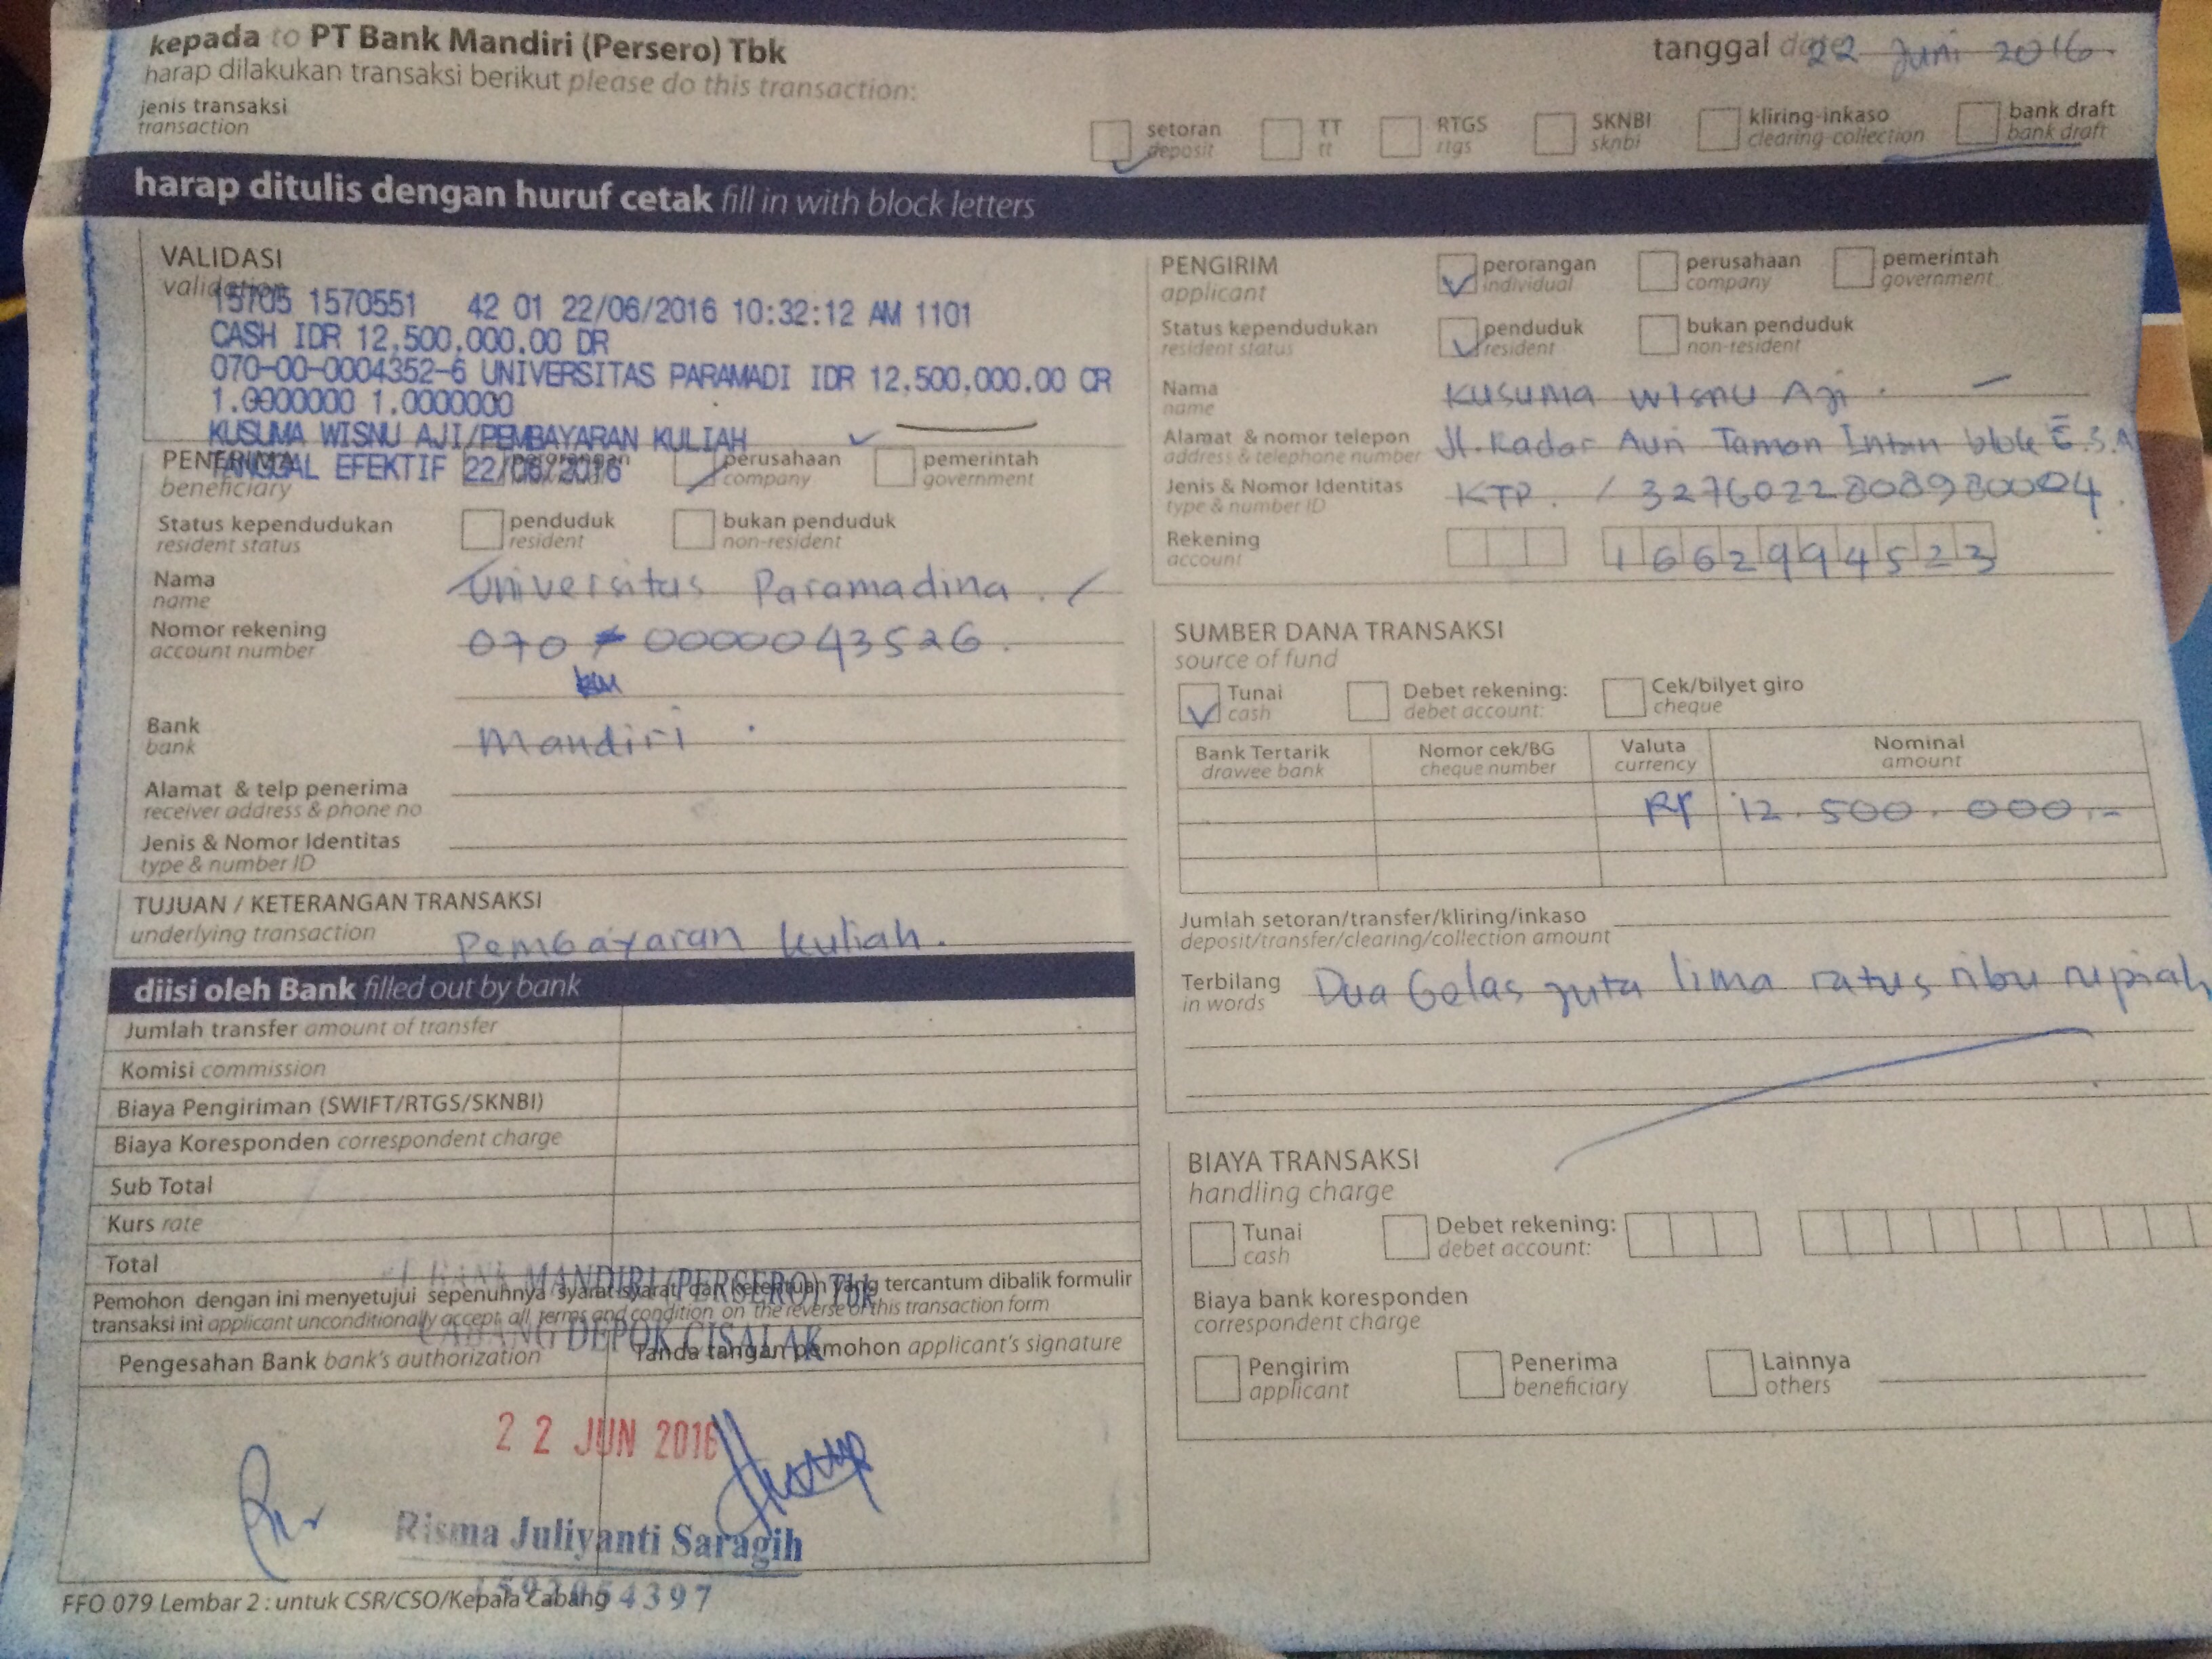 kepada to PT Bank Mandiri (Persero) Tbk
tanggal date 22 Juni 2016.
harap dilakukan transaksi berikut please do this transaction:
jenis transaksi
transaction
setoran
deposit
TT
tt
RTGS
rtgs
SKNBI
sknbi
kliring-inkaso
clearing-collection
bank draft
bank draft
harap ditulis dengan huruf cetak fill in with block letters
VALIDASI
validation
15705 1570551 42 01 22/06/2016 10:32:12 AM 1101
CASH IDR 12,500,000.00 DR
070-00-0004352-6 UNIVERSITAS PARAMADI IDR 12,500,000.00 CR
1.0000000 1.0000000
KUSUMA WISNU AJI/PEMBAYARAN KULIAH
TANGGAL EFEKTIF 22/06/2016
PENERIMA
beneficiary
perorangan
perusahaan
company
pemerintah
government
Status kependudukan
resident status
penduduk
resident
bukan penduduk
non-resident
Nama
name
Universitas Paramadina.
Nomor rekening
account number
070 0000043526.
Bank
bank
Mandiri.
Alamat & telp penerima
receiver address & phone no
Jenis & Nomor Identitas
type & number ID
TUJUAN / KETERANGAN TRANSAKSI
underlying transaction
Pembayaran kuliah.
diisi oleh Bank filled out by bank
Jumlah transfer amount of transfer
Komisi commission
Biaya Pengiriman (SWIFT/RTGS/SKNBI)
Biaya Koresponden correspondent charge
Sub Total
Kurs rate
Total
BANK MANDIRI (PERSERO) Tbk
Pemohon dengan ini menyetujui sepenuhnya syarat-syarat dan ketentuan yang tercantum dibalik formulir
transaksi ini applicant unconditionally accept all terms and condition on the reverse of this transaction form
CABANG DEPOK CISALAK
Pengesahan Bank bank's authorization
Tanda tangan pemohon applicant's signature
22 JUN 2016
Risma Juliyanti Saragih
FFO 079 Lembar 2 : untuk CSR/CSO/Kepala Cabang
PENGIRIM
applicant
perorangan
individual
perusahaan
company
pemerintah
government
Status kependudukan
resident status
penduduk
resident
bukan penduduk
non-resident
Nama
name
Kusuma Wisnu Aji.
Alamat & nomor telepon
address & telephone number
Jl. Radar Auri Taman Intan blok E.3.A
Jenis & Nomor Identitas
type & number ID
KTP. / 3276022808980004.
Rekening
account
1662994523
SUMBER DANA TRANSAKSI
source of fund
Tunai
cash
Debet rekening:
debet account:
Cek/bilyet giro
cheque
Bank Tertarik
drawee bank
Nomor cek/BG
cheque number
Valuta
currency
Nominal
amount
Rp 12.500.000.-
Jumlah setoran/transfer/kliring/inkaso
deposit/transfer/clearing/collection amount
Terbilang
in words
Dua belas juta lima ratus ribu rupiah
BIAYA TRANSAKSI
handling charge
Tunai
cash
Debet rekening:
debet account:
Biaya bank koresponden
correspondent charge
Pengirim
applicant
Penerima
beneficiary
Lainnya
others